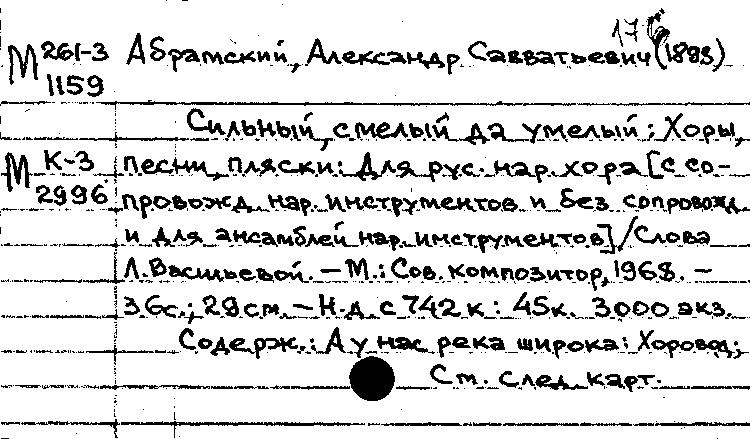 176
М 261-3 Абрамский, Александр Савватьевич (1898)
1159
Сильный, смелый да умелый: Хоры,
М К-3 песни, пляски: Для рус. нар. хора [с со-
2996 провожд. нар. инструментов и без сопровожд.
и для ансамблей нар. инструментов] / Слова
Л. Васильевой. – М.: Сов. композитор, 1968. –
36с.; 29см. – Н.д. с 742 к : 45к. 3000 экз.
Содерж.: А у нас река широка: Хоровод;
См. след. карт.